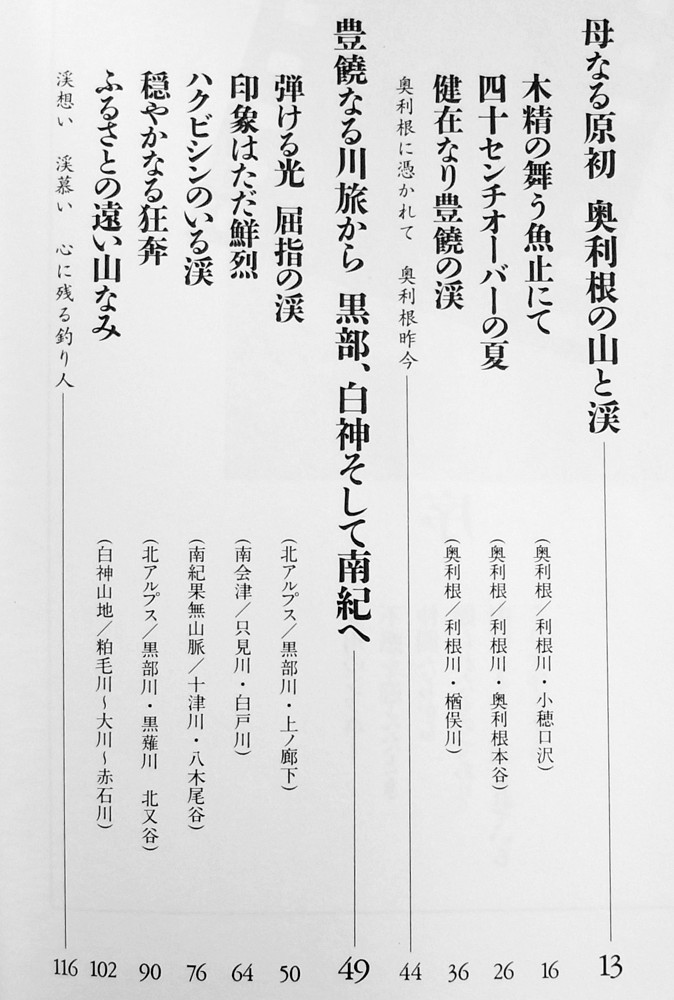 母なる原初 奥利根の山と渓 13
木精の舞う魚止にて (奥利根/利根川・小穂口沢) 16
四十センチオーバーの夏 (奥利根/利根川・奥利根本谷) 26
健在なり豊饒の渓 (奥利根/利根川・楢俣川) 36
奥利根に憑かれて 奥利根昨今 44
豊饒なる川旅から 黒部、白神そして南紀へ 49
弾ける光 屈指の渓 (北アルプス/黒部川・上ノ廊下) 50
印象はただ鮮烈 (南会津/只見川・白戸川) 64
ハクビシンのいる渓 (南紀果無山脈/十津川・八木尾谷) 76
穏やかなる狂奔 (北アルプス/黒部川・黒薙川 北又谷) 90
ふるさとの遠い山なみ (白神山地/粕毛川〜大川〜赤石川) 102
渓想い 渓慕い 心に残る釣り人 116